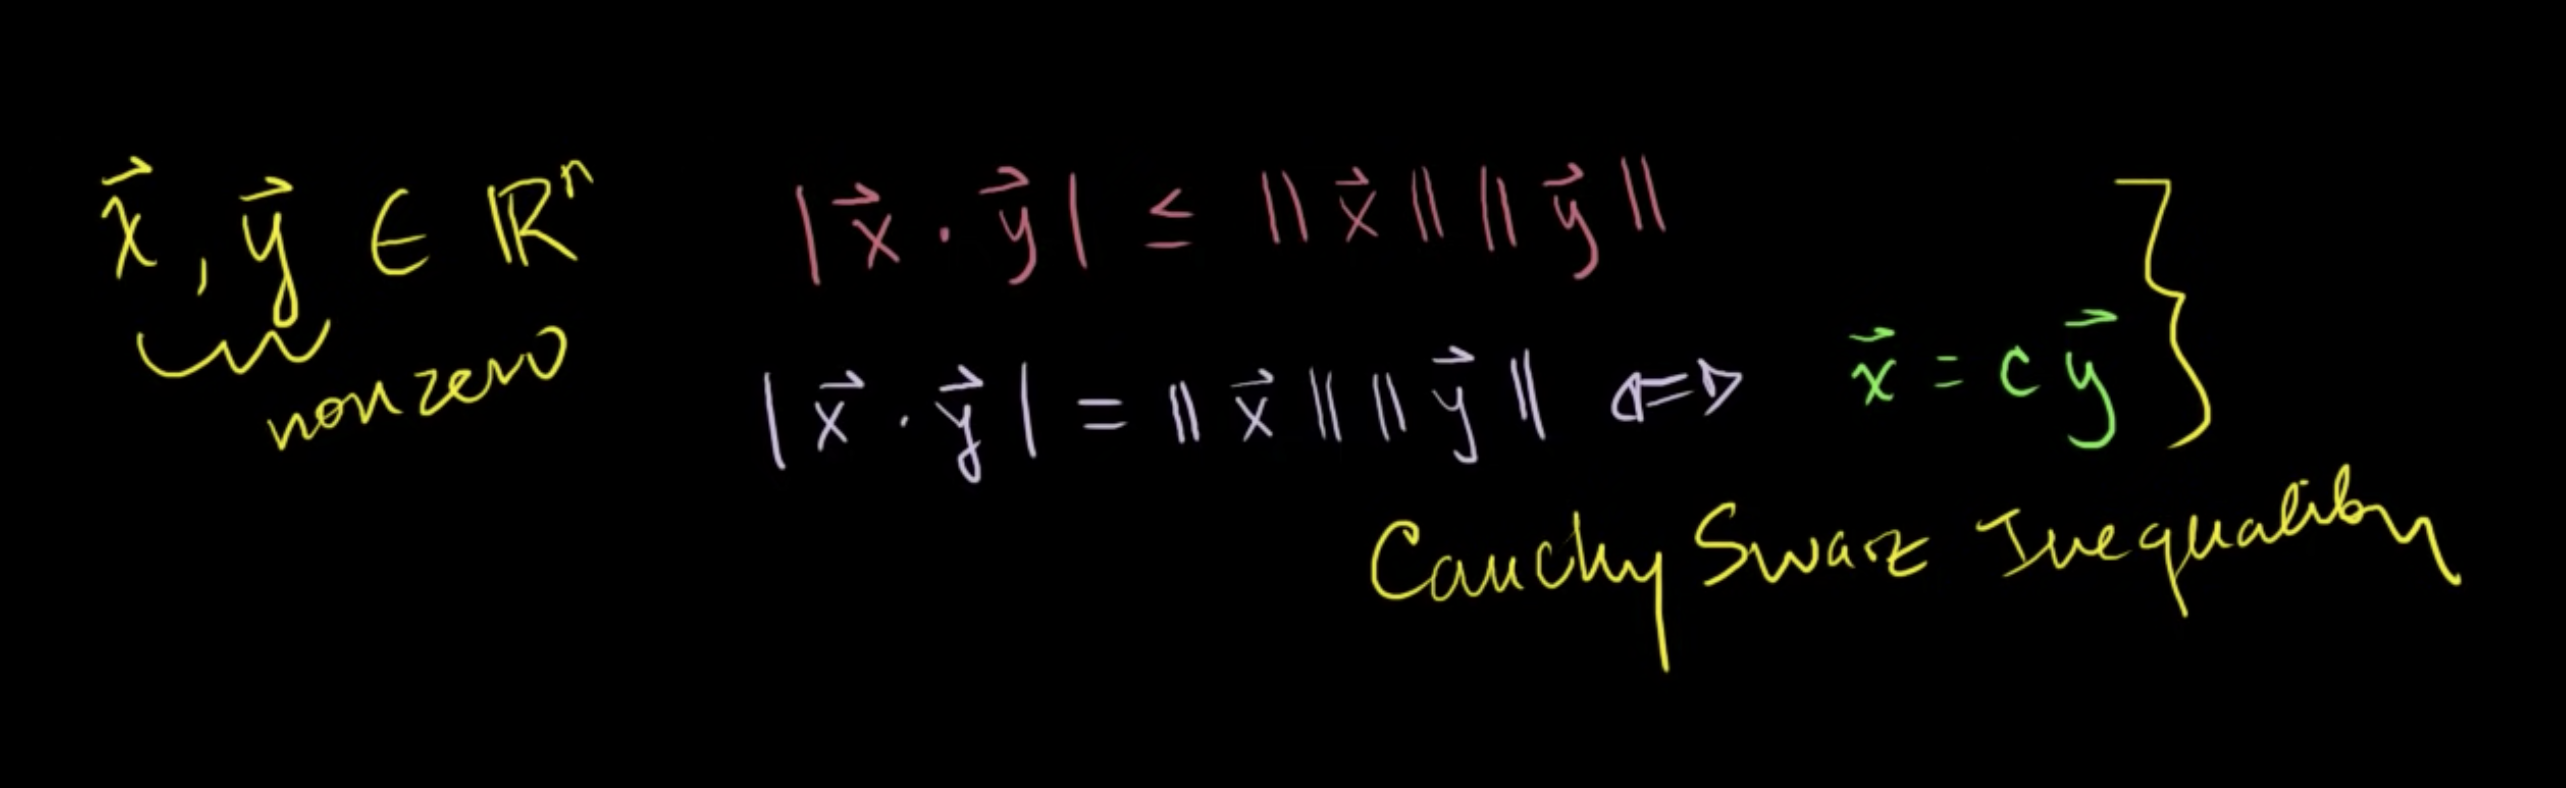 x⃗, y⃗ ∈ ℝⁿ
nonzero
|x⃗ · y⃗| ≤ ||x⃗|| ||y⃗||
|x⃗ · y⃗| = ||x⃗|| ||y⃗|| ⇔ x⃗ = c y⃗
Cauchy Swarz Inequality